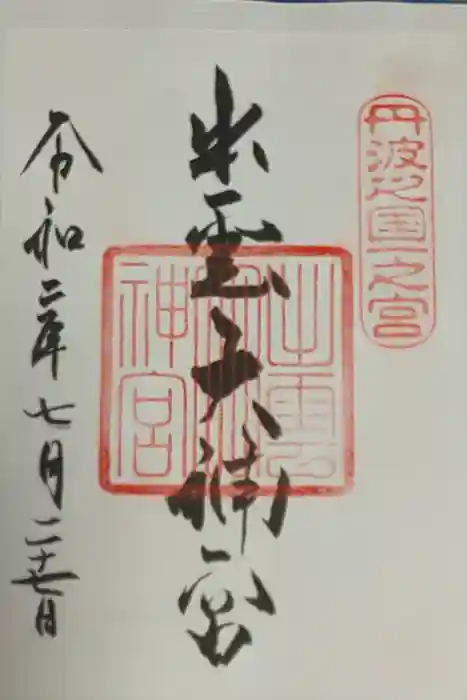 丹波之國一之宮
出雲大神宮
出雲大神宮
令和二年七月二十七日